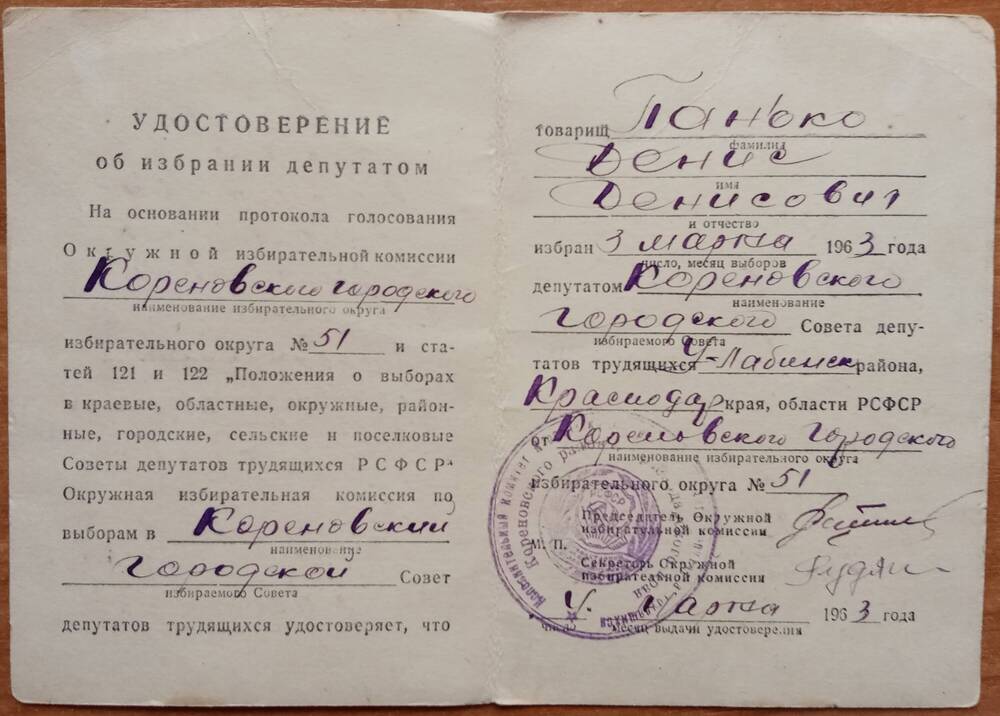 УДОСТОВЕРЕНИЕ
об избрании депутатом
На основании протокола голосования
Окружной избирательной комиссии
Кореновский городского
наименование избирательного округа
избирательного округа № 51 и ста-
тей 121 и 122 „Положения о выборах
в краевые, областные, окружные, район-
ные, городские, сельские и поселковые
Советы депутатов трудящихся РСФСР"
Окружная избирательная комиссия по
выборам в Кореновский
наименование
городской Совет
избираемого Совета
депутатов трудящихся удостоверяет, что
товарищ Панько
фамилия
Денис
имя
Денисович
и отчество
избран 3 марта 1963 года
число, месяц выборов
депутатом Кореновского
наименование
городского Совета депу-
избираемого Совета
татов трудящихся У-Лабинск района,
Краснодар края, области РСФСР
от Кореновского городского
наименование избирательного округа
избирательного округа № 51
Председатель Окружной
избирательной комиссии
М. П.
Секретарь Окружной
избирательной комиссии
4 марта 1963 года
число месяц выдачи удостоверения
Исполнительный комитет
Кореновского
РСФСР